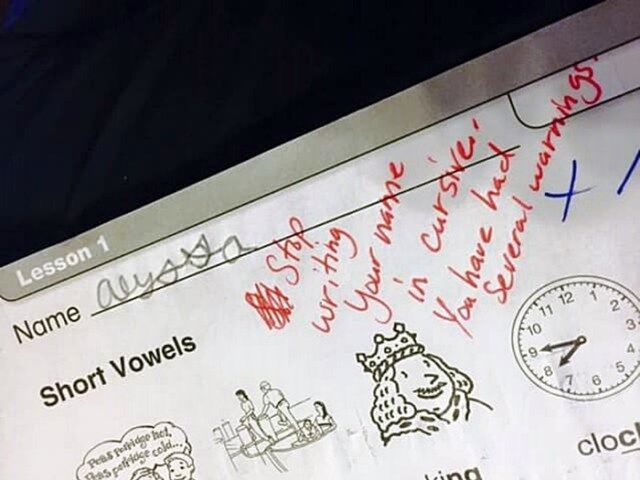 Lesson 1
Name alyssa
Stop
writing
your name
in cursive.
You have had
several warnings.
Short Vowels
11 12 1 2 3 4 5 6 7 8 9 10
Peas porridge hot,
Peas porridge cold...
king
clock